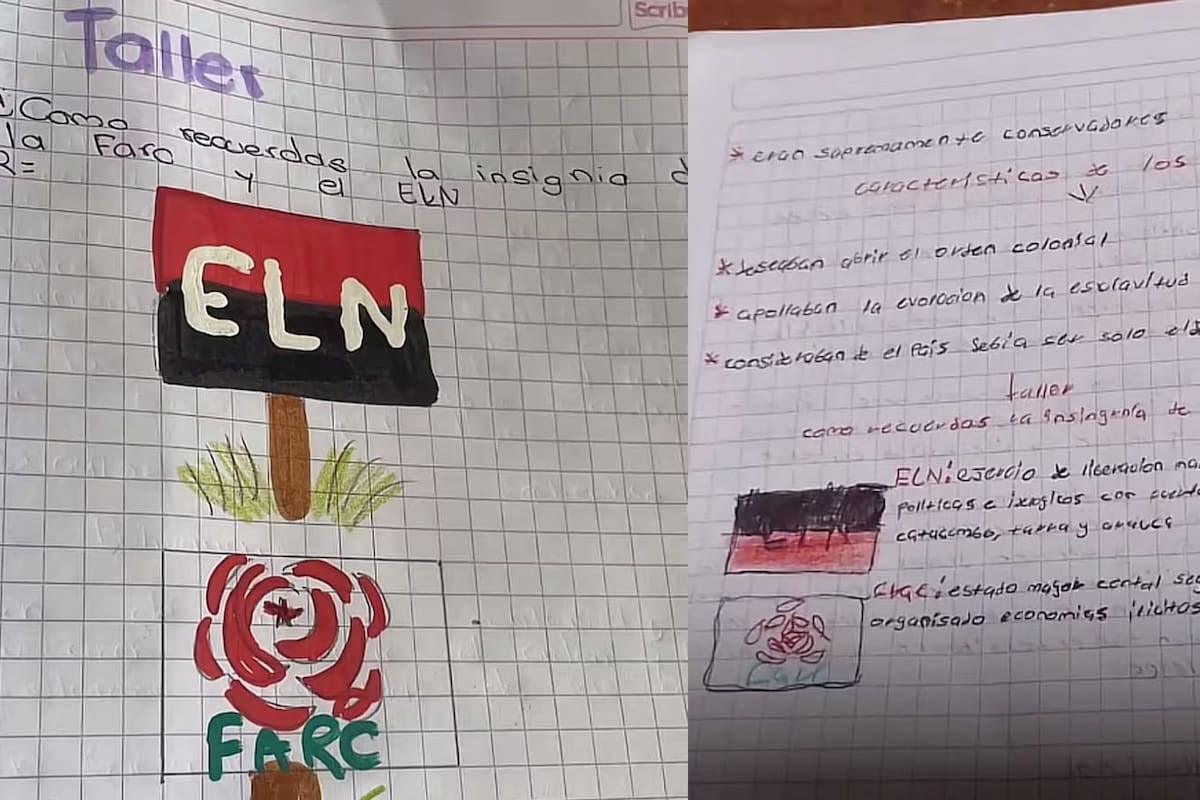 Scrib
Taller
¿Como recuerdas la insignia d
la Farc y el ELN
R=
ELN
FARC
* eran supremamente conservadores
caracteristicas de los
* deseaban abrir el orden colonial
* apollaban la avolacion de la esclavitud
* consideraban de el País debia ser solo
taller
como recuerdas la insingnia de
ELN: ejercio de liberacion na
politicas e
catatumbo, tarra y arauca
ELN
estado mayor cental
organisado economias ilichtas